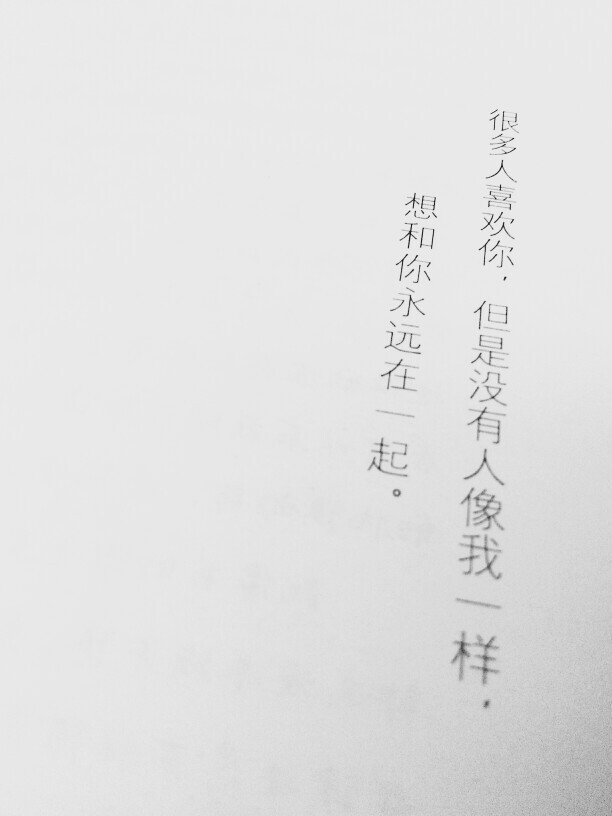 很多人喜欢你，但是没有人像我一样，
想和你永远在一起。